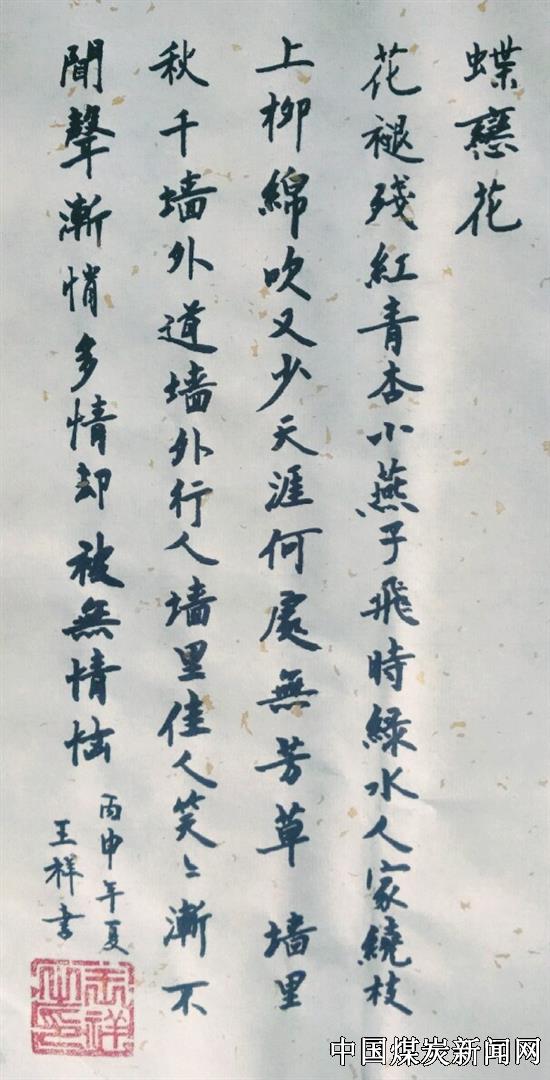 蝶戀花
花褪残紅青杏小燕子飛時緑水人家繞枝
上柳綿吹又少天涯何處無芳草 墙里
秋千墙外道墙外行人墙里佳人笑〻漸不
聞聲漸悄多情却被無情恼
丙申年夏
王祥書
中国煤炭新闻网